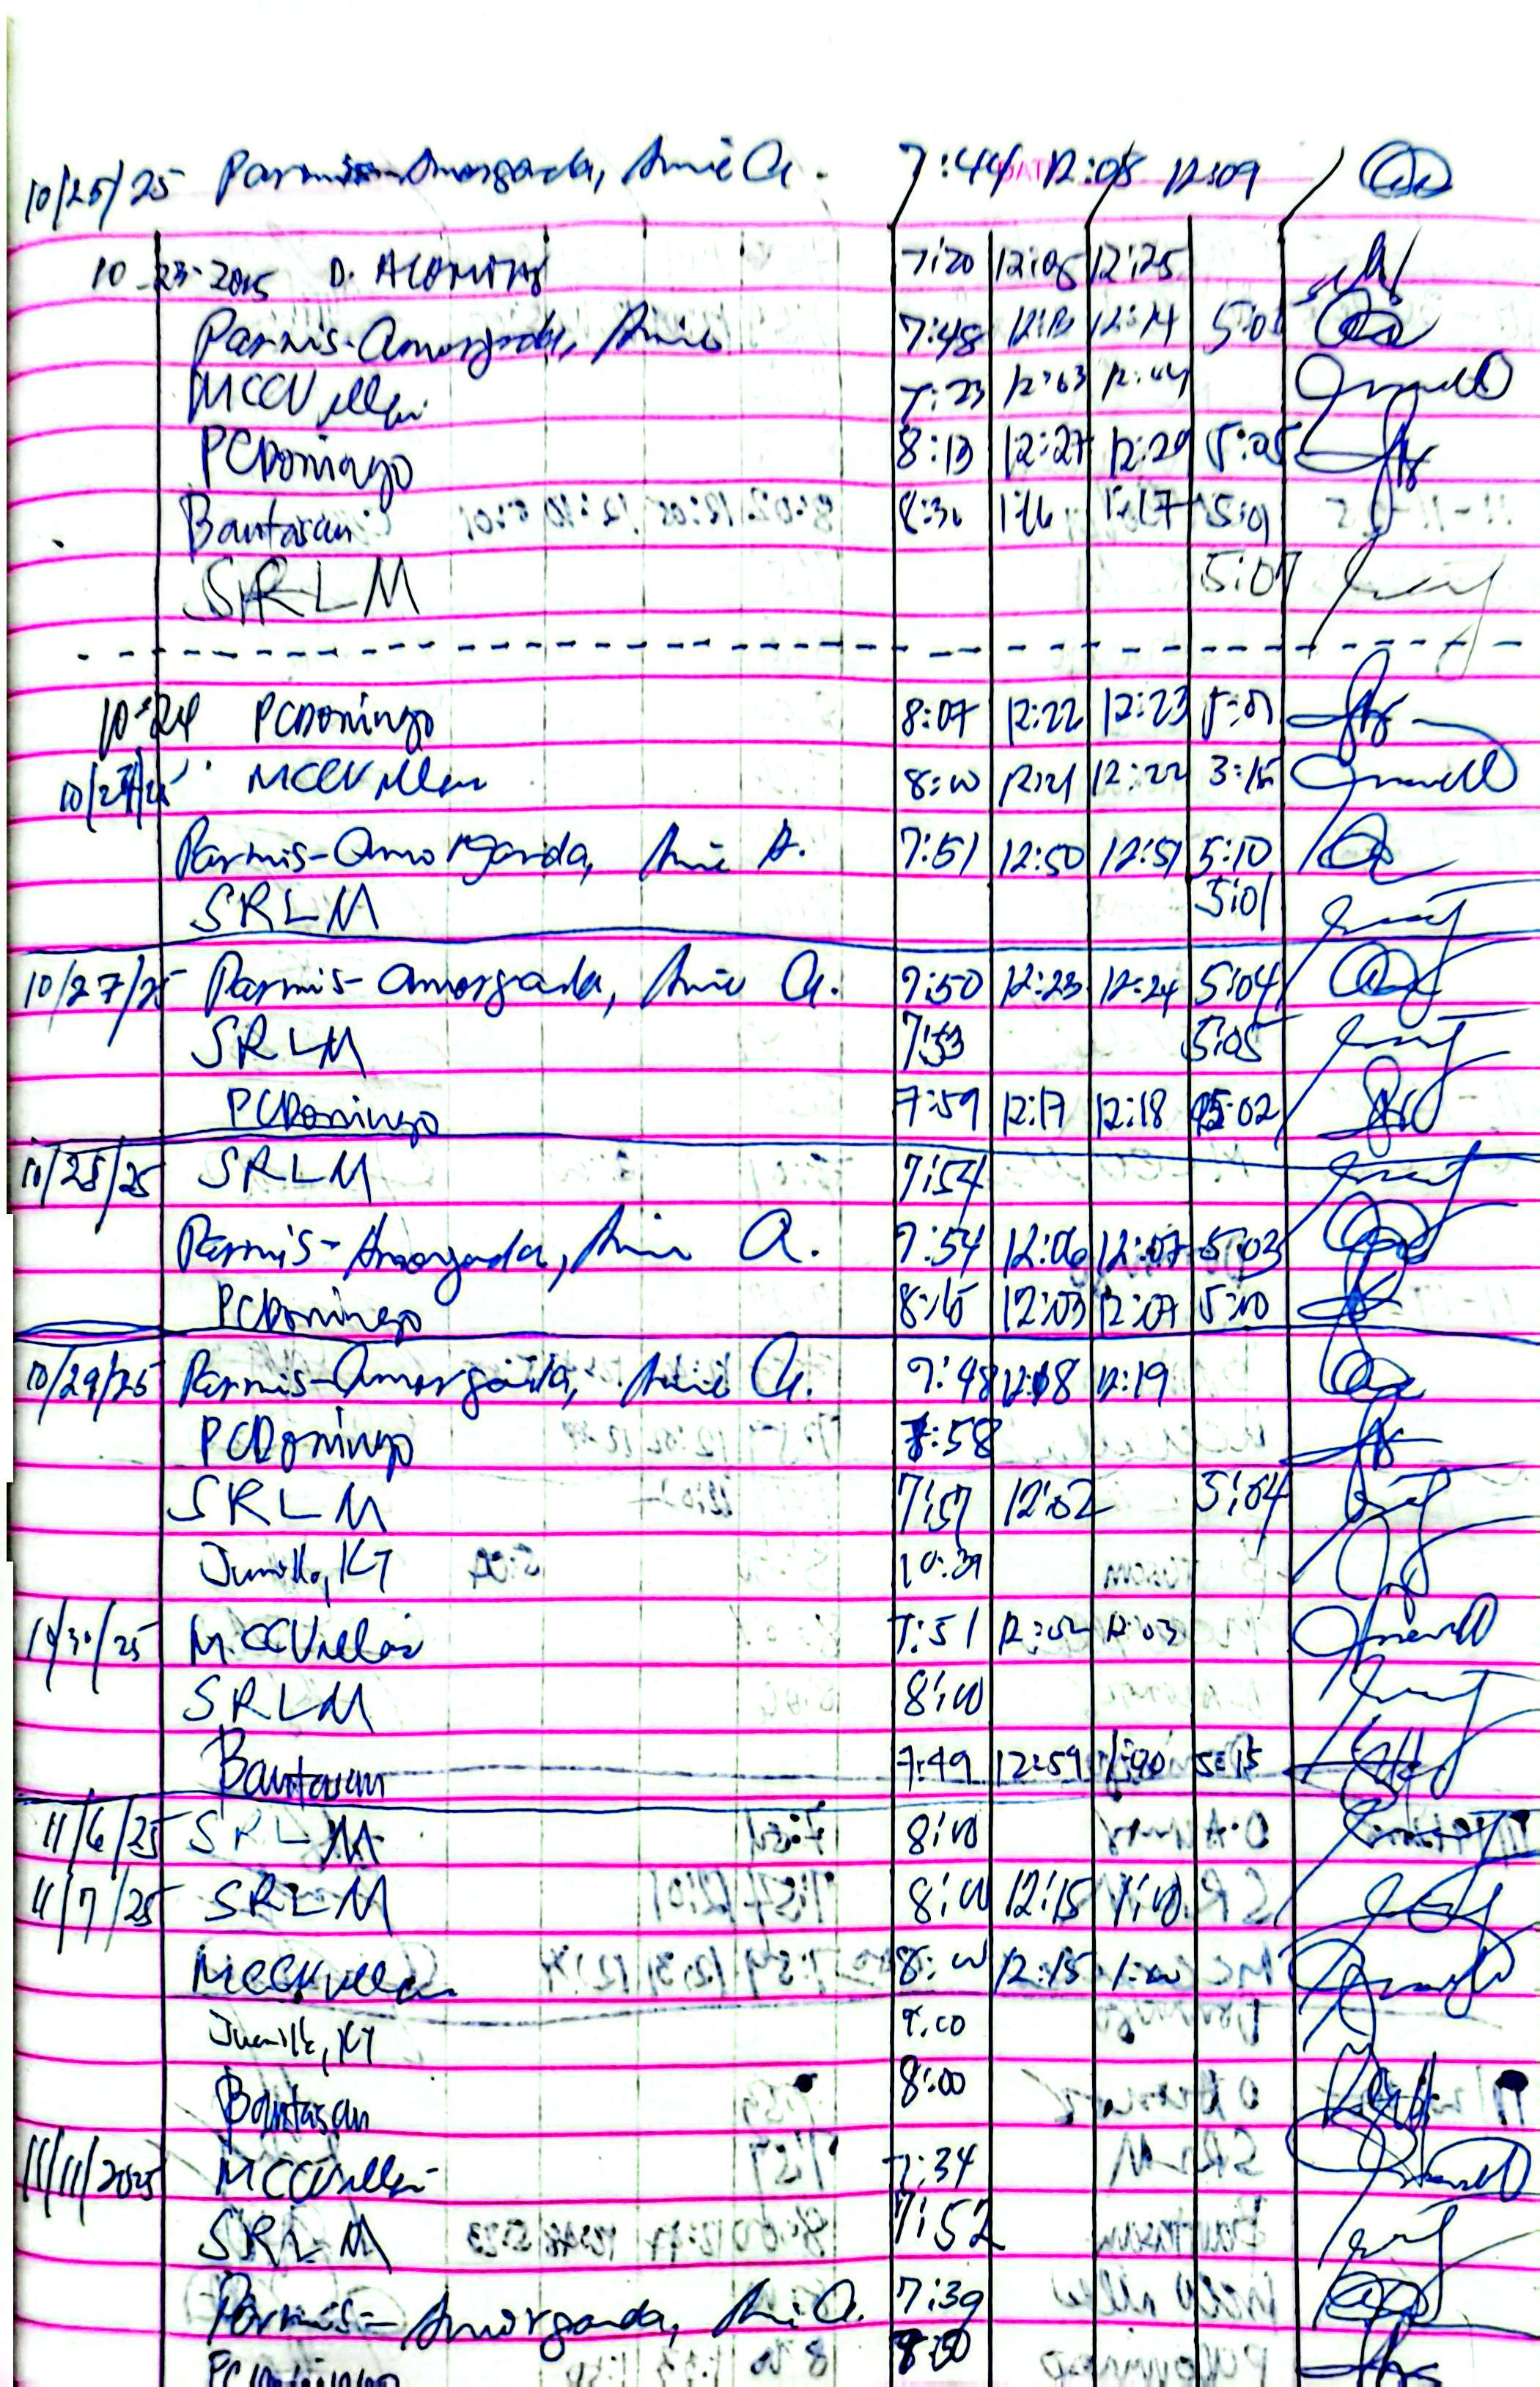 10/25/25 Parmis-Amorganda, Amie A. 7:44 12:08 12:09
10-23-2025 D. 7:20 12:05 12:25
Parmis-Amorganda, Amie 7:48 12:13 12:14 5:01
MCCVillar 7:23 12:03 12:04
PCDomingo 8:13 12:27 12:29 5:05
Bantasan 8:30 1:16 1:17 5:01
SRLM 5:07
10-24 PCDomingo 8:07 12:22 12:23 5:01
MCCVillar 8:00 12:21 12:22 3:15
Parmis-Amorganda, Amie A. 7:51 12:50 12:51 5:10
SRLM 5:01
10/27/25 Parmis-Amorganda, Amie A. 7:50 12:23 12:24 5:04
SRLM 7:53 5:05
PCDomingo 7:59 12:17 12:18 5:02
10/28/25 SRLM 7:54
Parmis-Amorganda, Amie A. 7:54 12:06 12:07 5:03
PCDomingo 8:15 12:03 12:07 5:10
10/29/25 Parmis-Amorganda, Amie A. 7:48 12:18 12:19
PCDomingo 7:58
SRLM 7:57 12:02 5:04
Jumilla, KT 10:39
10/30/25 MCCVillar 7:51 12:02 12:03
SRLM 8:00
Bantasan 7:49 12:59 1:00 5:15
11/6/25 SRLM 8:00
11/7/25 SRLM 8:00 12:15 1:00
MCCVillar 8:00 12:15 1:00
Jumilla, KT 9:00
Bantasan 8:00
11/11/2025 MCCVillar 7:34
SRLM 7:52
Parmis-Amorganda, Amie A. 7:39
PCDomingo